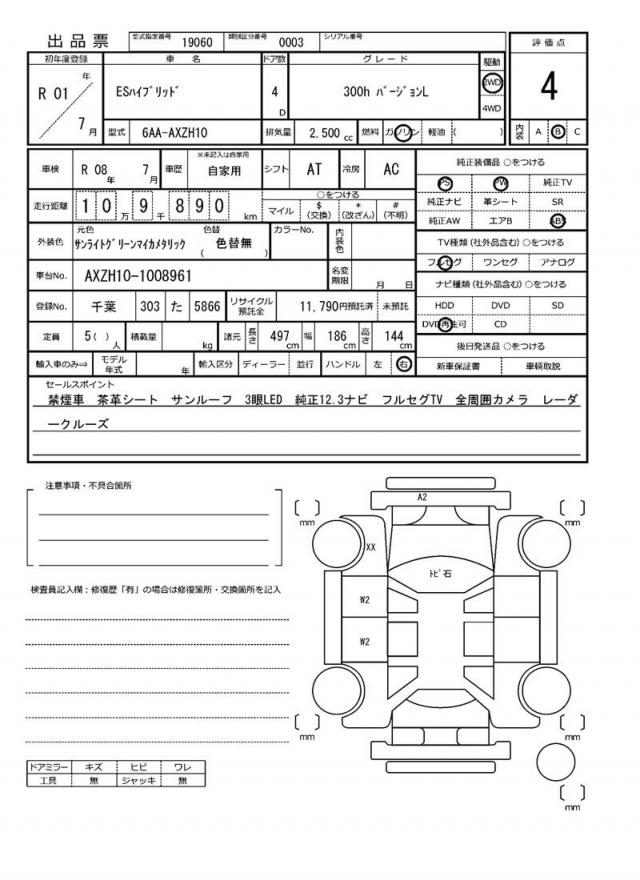 出品票 型式指定番号 19060 類別区分番号 0003 シリアル番号
評価点
初年度登録 車名 ドア数 グレード 駆動
R 01 年 7 月 ESハイブリッド 4 D 300h バージョンL 2WD 4WD
4
型式 6AA-AXZH10 排気量 2,500 cc 燃料 ガソリン 軽油 ( )
内装 A B C
車検 R 08 年 7 月 車歴 ※未記入は自家用 自家用 シフト AT 冷房 AC
走行距離 1 0 万 9 千 8 9 0 km
○をつける
マイル $ (交換) * (改ざん) # (不明)
外装色 元色 サンライトグリーンマイカメタリック 色替 ( 色替無 ) カラーNo. 内装色
車台No. AXZH10-1008961 名変期限 月 日
登録No. 千葉 303 た 5866 リサイクル預託金 11,790円預託済 未預託
定員 5( ) 人 積載量 kg 諸元 長さ 497 cm 幅 186 cm 高さ 144 cm
輸入車のみ⇒ モデル年式 年 輸入区分 ディーラー 並行 ハンドル 左 右
純正装備品 ○をつける
PS PW 純正TV
純正ナビ 革シート SR
純正AW エアB ABS
TV種類(社外品含む) ○をつける
フルセグ ワンセグ アナログ
ナビ種類(社外品含む) ○をつける
HDD DVD SD
DVD再生可 CD
後日発送品 ○をつける
新車保証書 車輌取説
セールスポイント
禁煙車 茶革シート サンルーフ 3眼LED 純正12.3ナビ フルセグTV 全周囲カメラ レーダ
ークルーズ
注意事項・不具合箇所
検査員記入欄:修復歴「有」の場合は修復箇所・交換箇所を記入
ドアミラー キズ ヒビ ワレ
工具 無 ジャッキ 無
A2
[ ] mm
[ ] mm
XX
トビ石
W2
W2
[ ] mm
[ ] mm
[ ] mm